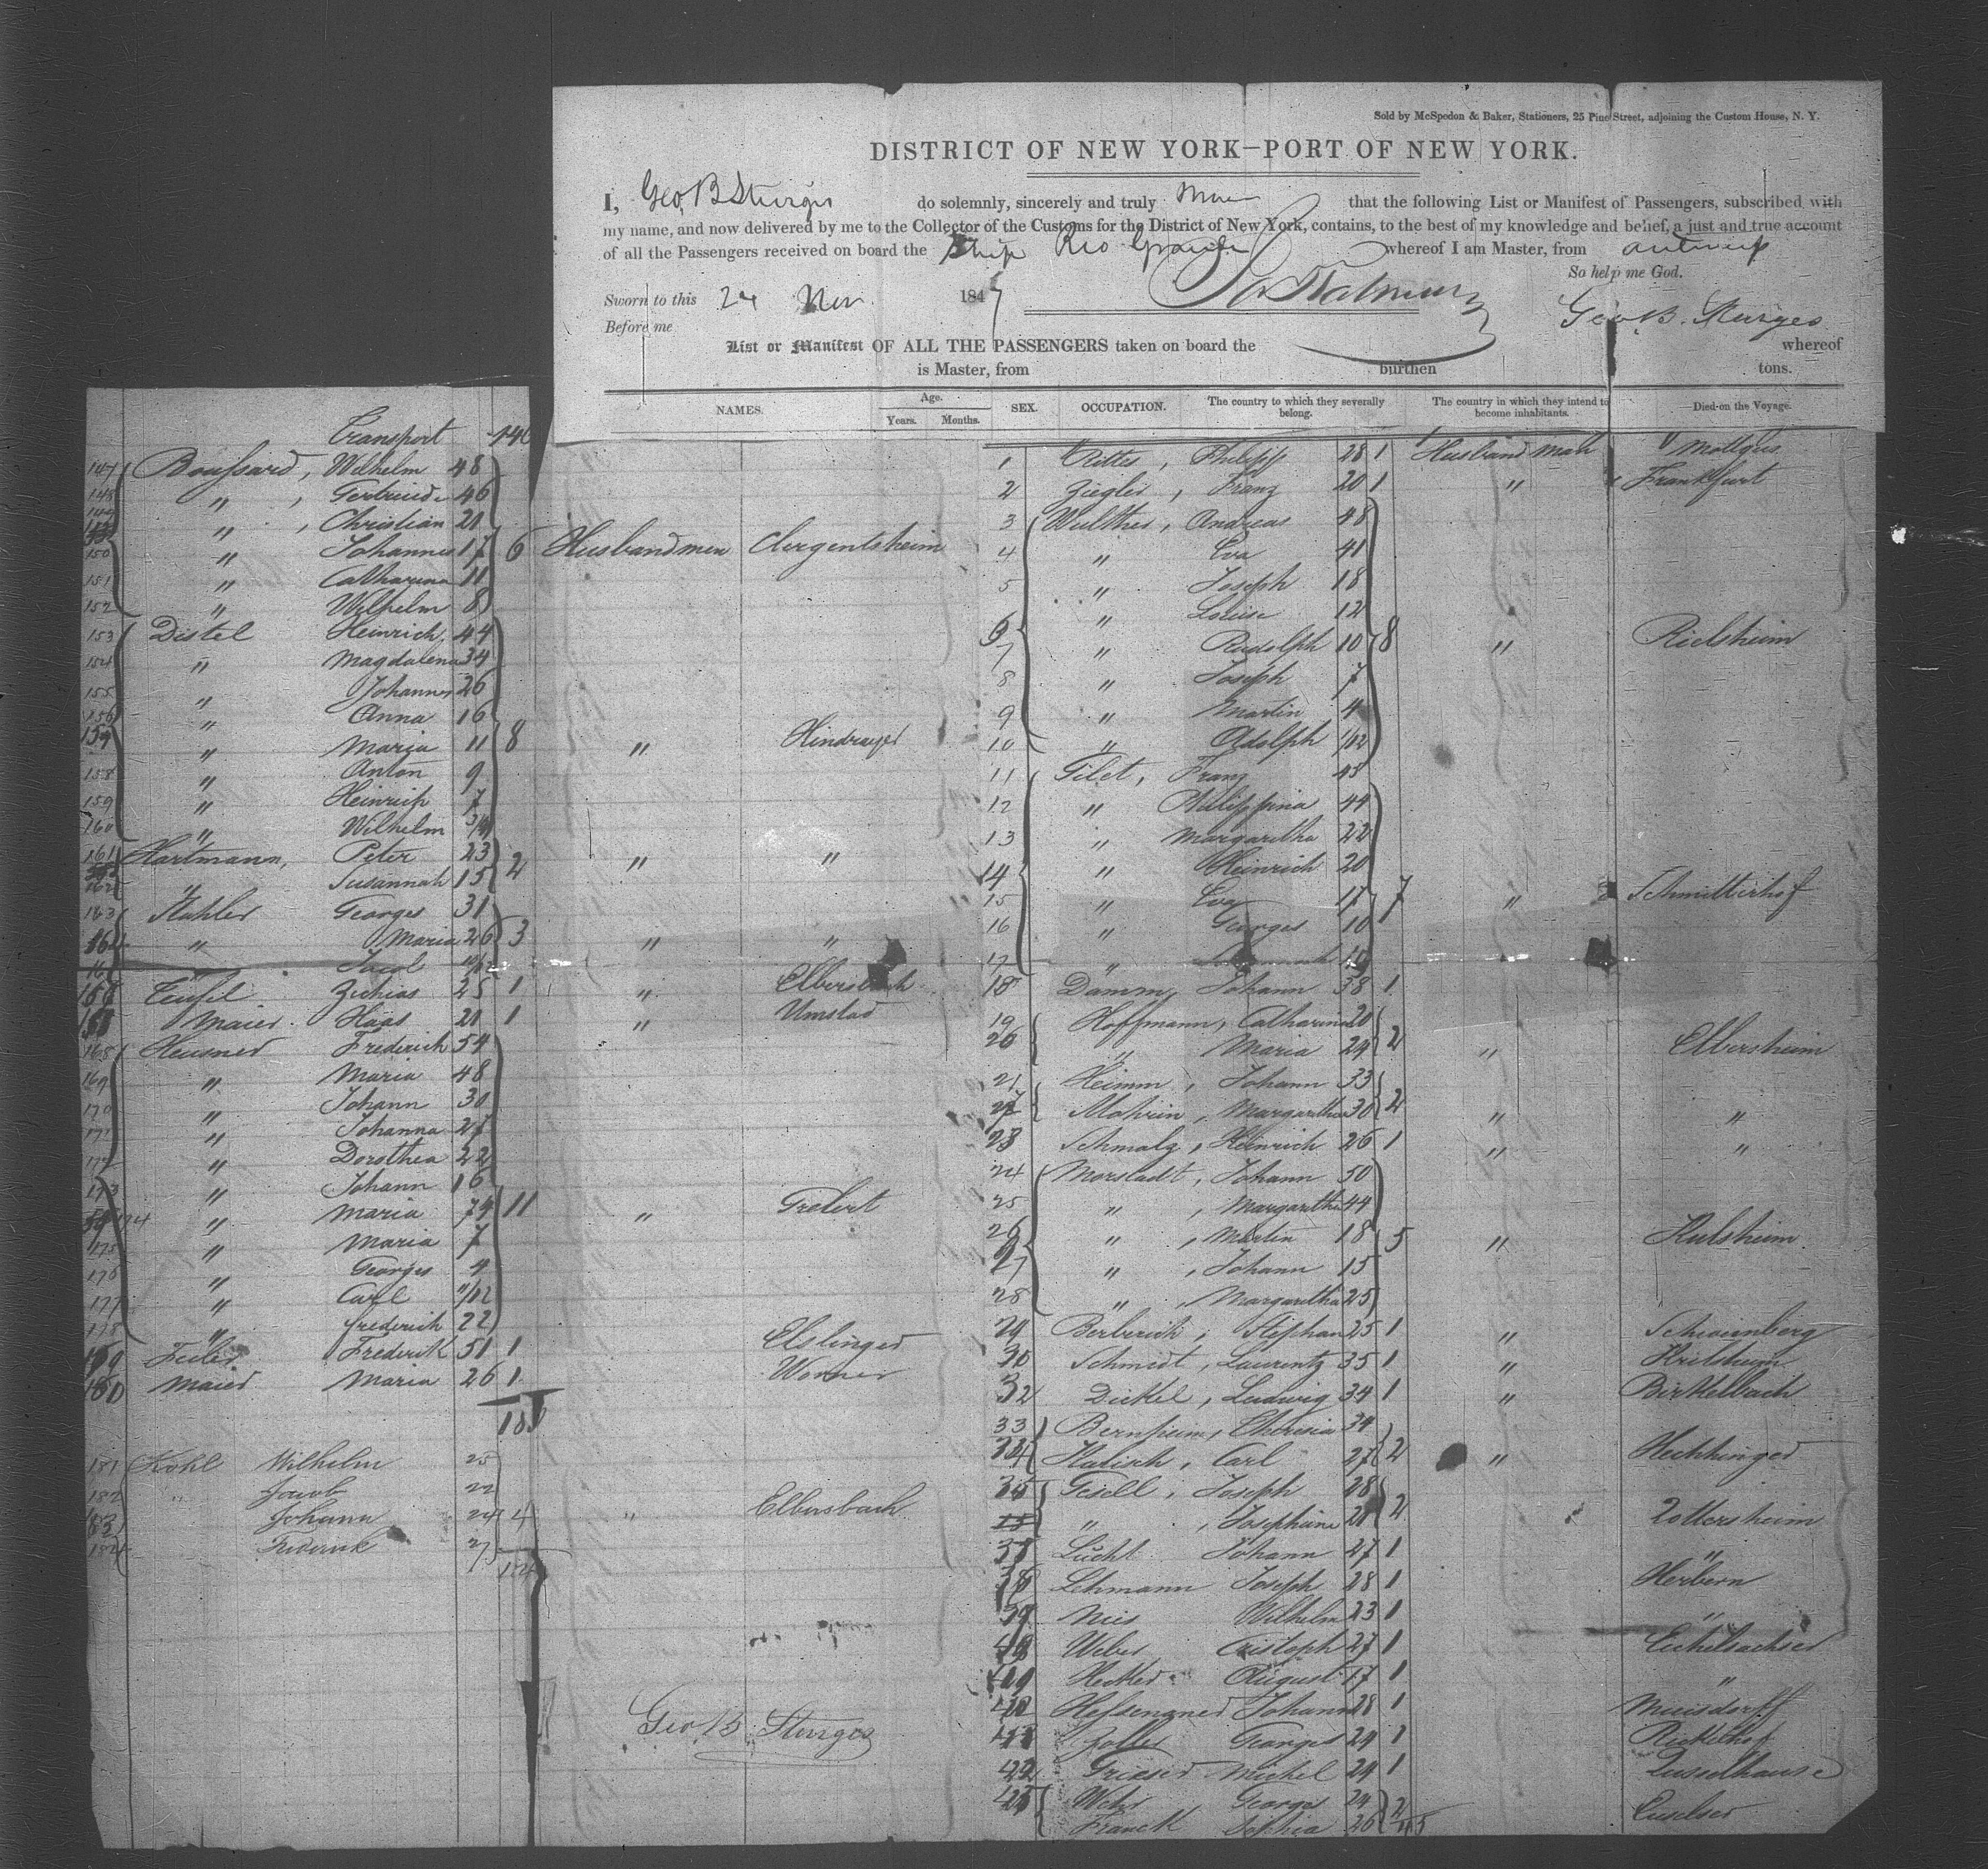 Sold by McSpedon & Baker, Stationers, 25 Pine Street, adjoining the Custom House, N. Y.
DISTRICT OF NEW YORK—PORT OF NEW YORK.
I, Geo. B Sturges do solemnly, sincerely and truly that the following List or Manifest of Passengers, subscribed with
my name, and now delivered by me to the Collector of the Customs for the District of New York, contains, to the best of my knowledge and belief, a just and true account
of all the Passengers received on board the Ship Rio Grande whereof I am Master, from Antwerp
So help me God.
Sworn to this 24 Nov 1847
Before me
Geo. B. Sturges
List or Manifest OF ALL THE PASSENGERS taken on board the whereof
is Master, from burthen tons.
NAMES. Age. Years. Months. SEX. OCCUPATION. The country to which they severally belong. The country in which they intend to become inhabitants. Died on the Voyage.
Transport 146
147 Boussard, Wilhelm 48
148 " , Gertrude 46
" , Christian 20
150 " Johannes 17 6 Husbandmen
151 " Catharina 11
152 " Wilhelm 8
153 Distel Heinrich 44
154 " Magdalena 34
155 " Johannes 26
156 " Anna 16
" Maria 11 8 "
158 " Anton 9
159 " Heinrich 7
160 " Wilhelm 3/4
161 Hartmann, Peter 23 2 " "
162 " Susannah 15
163 Kahler Georges 31
164 " Maria 26 3 " "
Jacob
Teufel 25 1 " Elbersbach
Maier 20 1 " Umstad
168 Heusner Frederich 54
169 " Maria 48
170 " Johann 30
171 " Johanna 27
172 " Dorothea 22
173 " Johann 16
174 " Maria 74 11 "
175 " Maria 7
176 " Georges 4
177 " Carl 11/12
178 " frederich 22
179 Frederik 51 1 Elslinger
180 Maier Maria 26 1
180
181 Kohl Wilhelm 25
182 " Jacob 22
183 Johann 24 4 " Elbersbach
184 Frederik 27
184
Geo B. Sturges
1 Ritter, Philipp 28 1 Husbandman
2 Ziegler, Franz 20 1 " Frankfurt
3 Walther, Andreas 48
4 " Eva 41
5 " Joseph 18
6 " Louise 12
7 " Rudolph 10 8 " Rielsheim
8 " Joseph 7
9 " Martin 4
10 " Adolph 1/12
11 Filet, Franz 45
12 " Philippina 44
13 " Margaretha 22
14 " Heinrich 20
15 " Eva 17 7 " Schmitterhof
16 " Georges 10
17 "
18 Damm, Johann 38 1
19 Hoffmann, Catharina 20
20 " Maria 24 2 " Elbersheim
21 Heimm, Johann 33
Mohrin, Margaretha 30 2 " "
23 Schmalz, Heinrich 26 1 " "
24 Morstadt, Johann 50
25 " , Margaretha 44
26 " , Martin 18 5 " Hulsheim
27 " , Johann 15
28 " , Margaretha 25
29 Berberich, Stephan 25 1 " Schweinberg
30 Schmidt, Laurentz 35 1 "
32 Dickel, Ludwig 34 1 " Birkelbach
33 Bernheim, Theresia 34
34 Kalisch, Carl 27 2 " Hechhinger
35 Gesell, Joseph 28
" , Josephine 20 2 Zollersheim
37 Lücht Johann 27 1 "
38 Lehmann Joseph 28 1 Herbern
39 Nies Wilhelm 23 1 "
Weber Cristoph 27 1 Eichelsachser
Hecker August 17 1 "
Johann 28 1
Georges 29 1
Grieser Michel 24 1
Wehr George 24
Franck Sophia 26 2
45